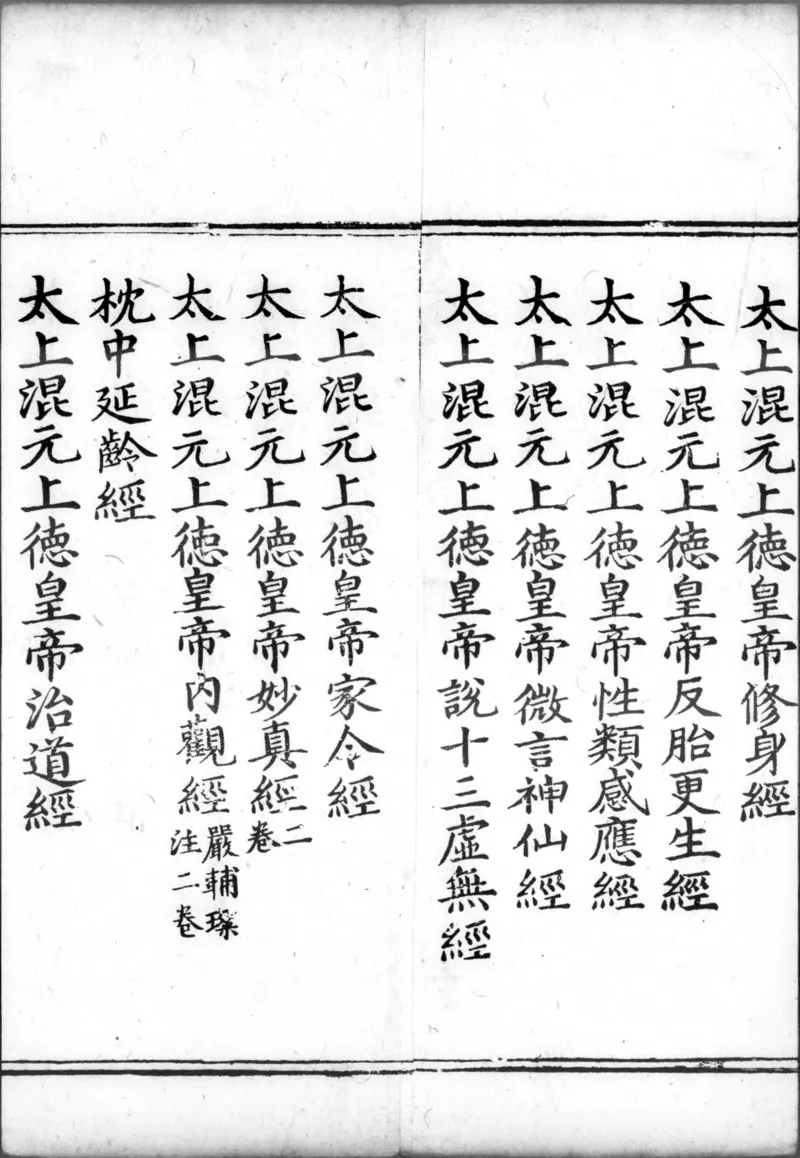 太上混元上徳皇帝修身經
太上混元上徳皇帝反胎更生經
太上混元上徳皇帝性類感應經
太上混元上徳皇帝微言神仙經
太上混元上徳皇帝說十三虛無經
太上混元上徳皇帝家令經
太上混元上徳皇帝妙真經二卷
太上混元上徳皇帝內觀經嚴輔璨注二卷
枕中延齡經
太上混元上徳皇帝治道經